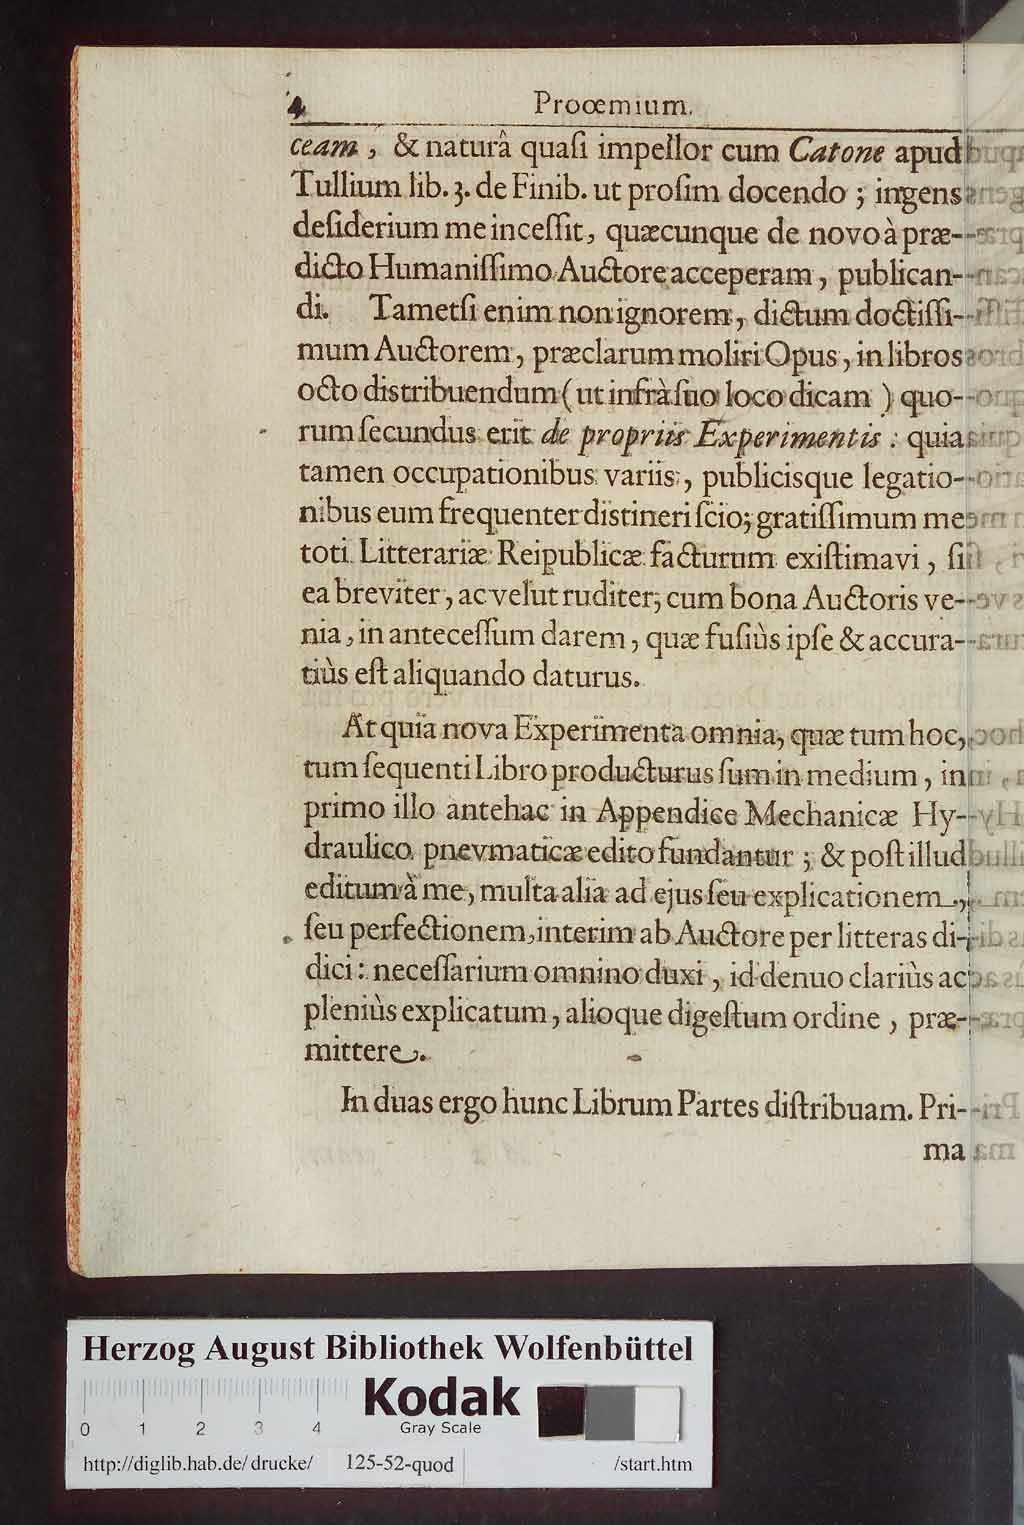 4 Proœmium.
ceam, & naturâ quaſi impellor cum Catone apud
Tullium lib. 3. de Finib. ut proſim docendo ; ingens
deſiderium me inceſſit, quæcunque de novo à præ-
dicto Humaniſſimo Auctore acceperam, publican-
di. Tametſi enim non ignorem, dictum doctiſſi-
mum Auctorem, præclarum moliri Opus, in libros
octo distribuendum ( ut infrà ſuo loco dicam ) quo-
rum ſecundus erit de propriis Experimentis : quia
tamen occupationibus variis, publicisque legatio-
nibus eum frequenter distineri ſcio; gratiſſimum me
toti Litterariæ Reipublicæ facturum exiſtimavi, ſi
ea breviter, ac velut ruditer, cum bona Auctoris ve-
nia, in anteceſſum darem, quæ fuſiùs ipſe & accura-
tiùs eſt aliquando daturus.
At quia nova Experimenta omnia, quæ tum hoc,
tum ſequenti Libro producturus ſum in medium, in
primo illo antehac in Appendice Mechanicæ Hy-
draulico pnevmaticæ edito fundantur ; & poſt illud
editum à me, multa alia ad ejus ſeu explicationem,
ſeu perfectionem, interim ab Auctore per litteras di-
dici : neceſſarium omnino duxi, id denuo clariùs ac
pleniùs explicatum, alioque digeſtum ordine, præ-
mittere.
In duas ergo hunc Librum Partes diſtribuam. Pri-
ma
Herzog August Bibliothek Wolfenbüttel
Kodak
Gray Scale
0 1 2 3 4
http://diglib.hab.de/drucke/ 125-52-quod /start.htm